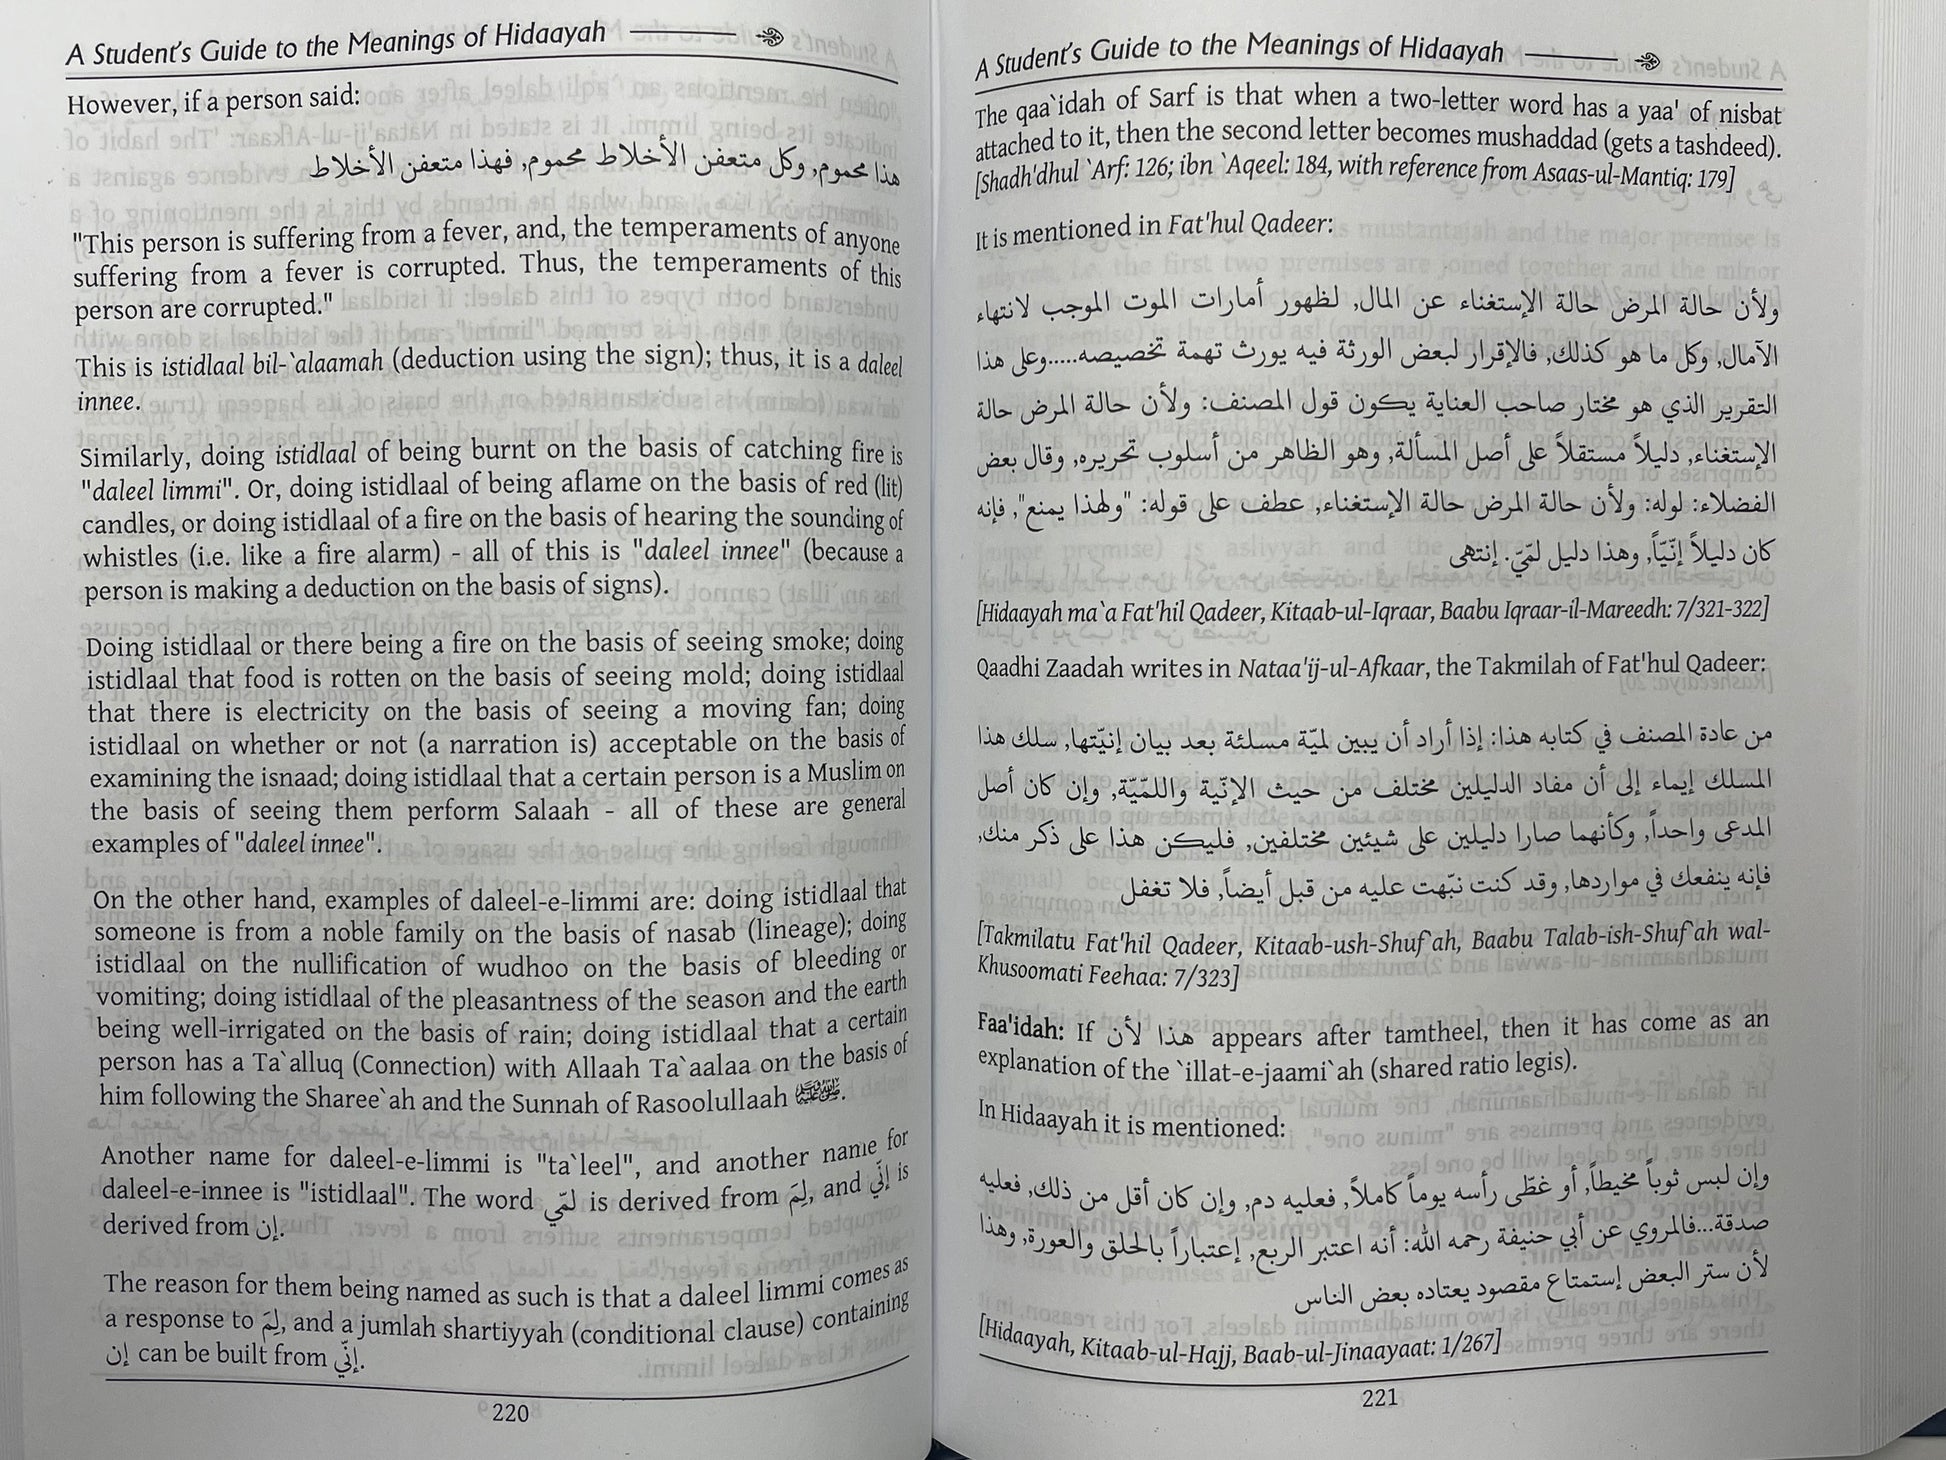 A Student's Guide to the Meanings of Hidaayah
However, if a person said:
هذا محموم, وكل متعفن الأخلاط محموم, فهذا متعفن الأخلاط
"This person is suffering from a fever, and, the temperaments of anyone
suffering from a fever is corrupted. Thus, the temperaments of this
person are corrupted."
This is istidlaal bil-`alaamah (deduction using the sign); thus, it is a daleel
innee.
Similarly, doing istidlaal of being burnt on the basis of catching fire is
"daleel limmi". Or, doing istidlaal of being aflame on the basis of red (lit)
candles, or doing istidlaal of a fire on the basis of hearing the sounding of
whistles (i.e. like a fire alarm) - all of this is "daleel innee" (because a
person is making a deduction on the basis of signs).
Doing istidlaal or there being a fire on the basis of seeing smoke; doing
istidlaal that food is rotten on the basis of seeing mold; doing istidlaal
that there is electricity on the basis of seeing a moving fan; doing
istidlaal on whether or not (a narration is) acceptable on the basis of
examining the isnaad; doing istidlaal that a certain person is a Muslim on
the basis of seeing them perform Salaah - all of these are general
examples of "daleel innee".
On the other hand, examples of daleel-e-limmi are: doing istidlaal that
someone is from a noble family on the basis of nasab (lineage); doing
istidlaal on the nullification of wudhoo on the basis of bleeding or
vomiting; doing istidlaal of the pleasantness of the season and the earth
being well-irrigated on the basis of rain; doing istidlaal that a certain
person has a Ta`alluq (Connection) with Allaah Ta`aalaa on the basis of
him following the Sharee`ah and the Sunnah of Rasoolullaah ﷺ.
Another name for daleel-e-limmi is "ta`leel", and another name for
daleel-e-innee is "istidlaal". The word لمّي is derived from لِمَ, and إنّي is
derived from إن.
The reason for them being named as such is that a daleel limmi comes as
a response to لِمَ, and a jumlah shartiyyah (conditional clause) containing
إن can be built from إنّي.
220
A Student's Guide to the Meanings of Hidaayah
The qaa`idah of Sarf is that when a two-letter word has a yaa' of nisbat
attached to it, then the second letter becomes mushaddad (gets a tashdeed).
[Shadh'dhul `Arf: 126; ibn `Aqeel: 184, with reference from Asaas-ul-Mantiq: 179]
It is mentioned in Fat'hul Qadeer:
ولأن حالة المرض حالة الإستغناء عن المال, لظهور أمارات الموت الموجب لانتهاء
الآمال, وكل ما هو كذلك, فالإقرار لبعض الورثة فيه يورث تهمة تخصيصه.....وعلى هذا
التقرير الذي هو مختار صاحب العناية يكون قول المصنف: ولأن حالة المرض حالة
الإستغناء, دليلاً مستقلاً على أصل المسألة, وهو الظاهر من أسلوب تحريره, وقال بعض
الفضلاء: لوله: ولأن حالة المرض حالة الإستغناء, عطف على قوله: "ولهذا يمنع", فإنه
كان دليلاً إنّيّاً, وهذا دليل لمّيّ. إنتهى
[Hidaayah ma`a Fat'hil Qadeer, Kitaab-ul-Iqraar, Baabu Iqraar-il-Mareedh: 7/321-322]
Qaadhi Zaadah writes in Nataa'ij-ul-Afkaar, the Takmilah of Fat'hul Qadeer:
من عادة المصنف في كتابه هذا: إذا أراد أن يبين لميّة مسلئة بعد بيان إنيّتها, سلك هذا
المسلك إيماء إلى أن مفاد الدليلين مختلف من حيث الإنّية واللمّيّة, وإن كان أصل
المدعى واحداً, وكأنهما صارا دليلين على شيئين مختلفين, فليكن هذا على ذكر منك,
فإنه ينفعك في مواردها, وقد كنت نبّهت عليه من قبل أيضاً, فلا تغفل
[Takmilatu Fat'hil Qadeer, Kitaab-ush-Shuf`ah, Baabu Talab-ish-Shuf`ah wal-
Khusoomati Feehaa: 7/323]
Faa'idah: If هذا لأن appears after tamtheel, then it has come as an
explanation of the `illat-e-jaami`ah (shared ratio legis).
In Hidaayah it is mentioned:
وإن لبس ثوباً مخيطاً, أو غطّى رأسه يوماً كاملاً, فعليه دم, وإن كان أقل من ذلك, فعليه
صدقة...فالمروي عن أبي حنيفة رحمه الله: أنه اعتبر الربع, إعتباراً بالحلق والعورة, وهذا
لأن ستر البعض إستمتاع مقصود يعتاده بعض الناس
[Hidaayah, Kitaab-ul-Hajj, Baab-ul-Jinaayaat: 1/267]
221